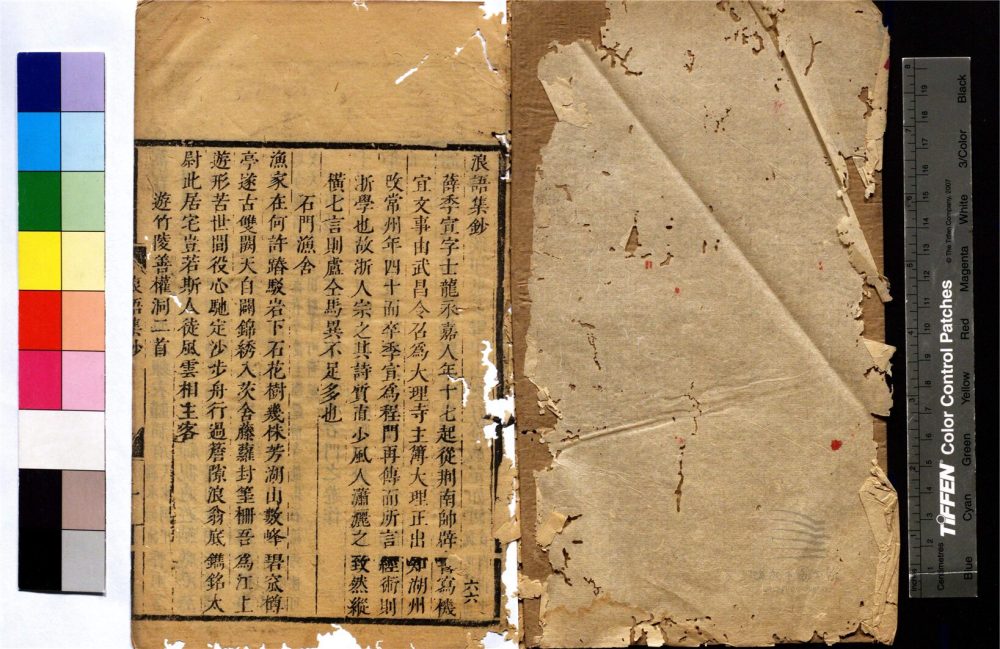 浪語集鈔
薛季宣字士龍永嘉人年十七起從荊南帥辟書寫機
宜文事由武昌令召為大理寺主簿大理正出知湖州
改常州年四十而卒季宣為程門再傳而所言經術則
浙學也故浙人宗之其詩質直少風人瀟灑之致然縱
橫七言則盧仝馬異不足多也
石門漁舍
漁家在何許踳駁岩下石花樹幾株芳湖山數峰碧窊樽
亭遂古雙闕天自闢錦綉入茨舍藤蘿封筆柵吾為江上
遊形苦世間役心馳定沙步舟行過簷隙浪翁底鐫銘太
尉此居宅豈若斯人徒風雲相主客
遊竹陵善權洞二首
浪語集鈔
六六
Inches
Centimetres
TIFFEN Color Control Patches
© The Tiffen Company, 2007
Blue
Cyan
Green
Yellow
Red
Magenta
White
3/Color
Black